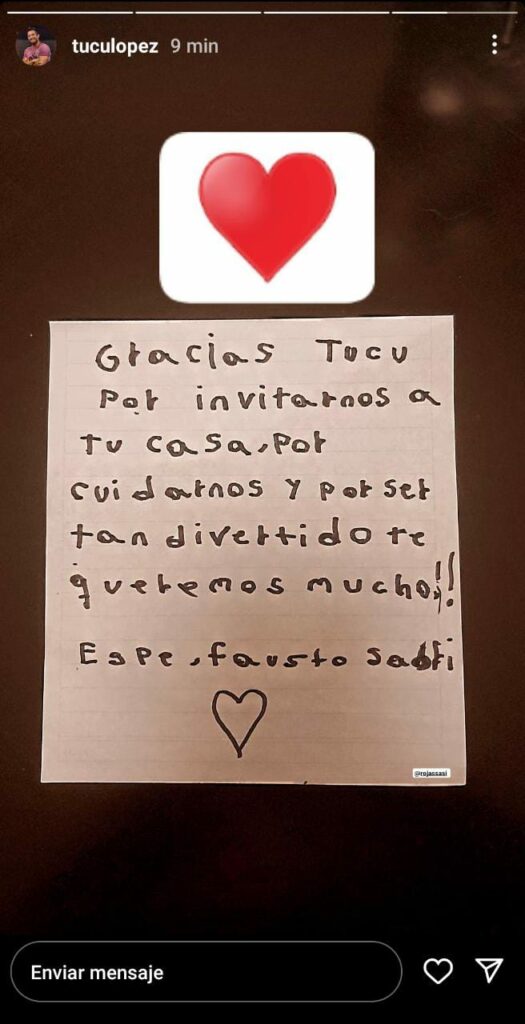 tuculopez 9 min
Gracias Tucu
Por invitarnos a
Tu casa, por
cuidarnos y por ser
tan divertido te
queremos mucho!!
Espe, fausto
@rojassasi
Enviar mensaje